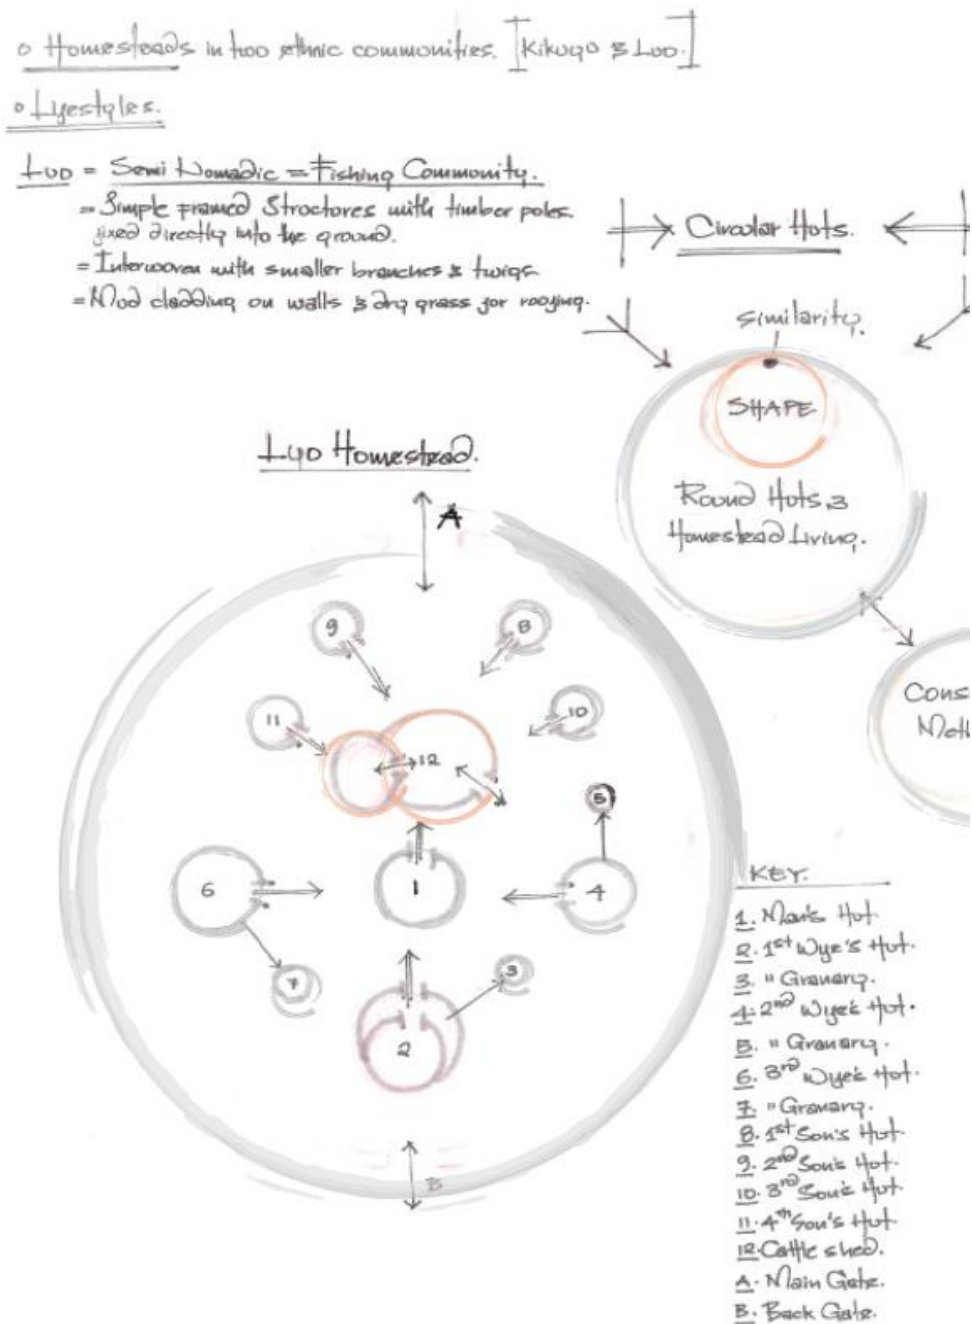 o Homesteads in two ethnic communities. [Kikuyu & Luo.]
o Lifestyles.
Luo = Semi Nomadic = Fishing Community.
= Simple framed Structures with timber poles.
fixed directly into the ground.
= Interwoven with smaller branches & twigs
= Mud cladding on walls & dry grass for roofing.
Circular Huts.
similarity.
SHAPE
Round Huts, &
Homestead Living.
Cons
Meth
Luo Homestead.
A
9
8
11
10
12
5
6
1
4
7
3
2
B
KEY.
1. Man's Hut
2. 1st Wife's Hut.
3. " Granary.
4. 2nd Wife's Hut.
5. " Granary.
6. 3rd Wife's Hut.
7. " Granary.
8. 1st Son's Hut.
9. 2nd Son's Hut.
10. 3rd Son's Hut
11. 4th Son's Hut
12. Cattle shed.
A. Main Gate.
B. Back Gate.